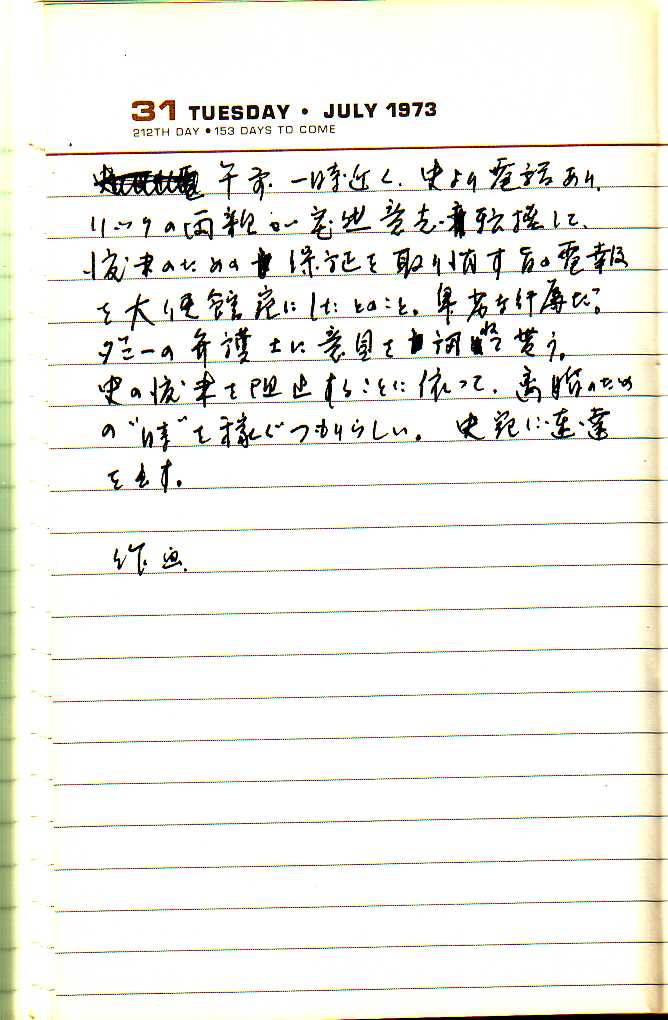 31 TUESDAY • JULY 1973
212TH DAY • 153 DAYS TO COME
午前一時近く、史より電話あり、
リックの両親が突然意志転換して、
渡米のための保証を取り消す旨の電報
を大使館宛にしたとのこと。卑劣な行為だ。
タミーの弁護士に意見を調べて貰う。
史の渡米を阻止することに依って、離婚のため
の"時"を稼ぐつもりらしい。史宛に速達
を出す。
作画。